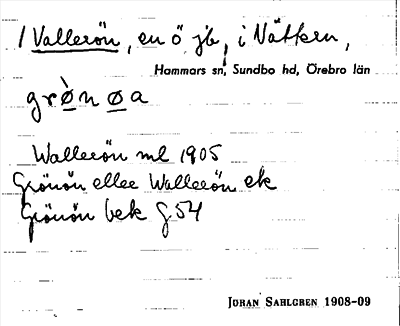 / Vallerön, en ö jb, i Vättern,
Hammars sn, Sundbo hd, Örebro län
grø̀nøa
Wallerön ml 1905
Grönön eller Wallerön ek
Grönön bek G 54
JÖRAN SAHLGREN 1908-09